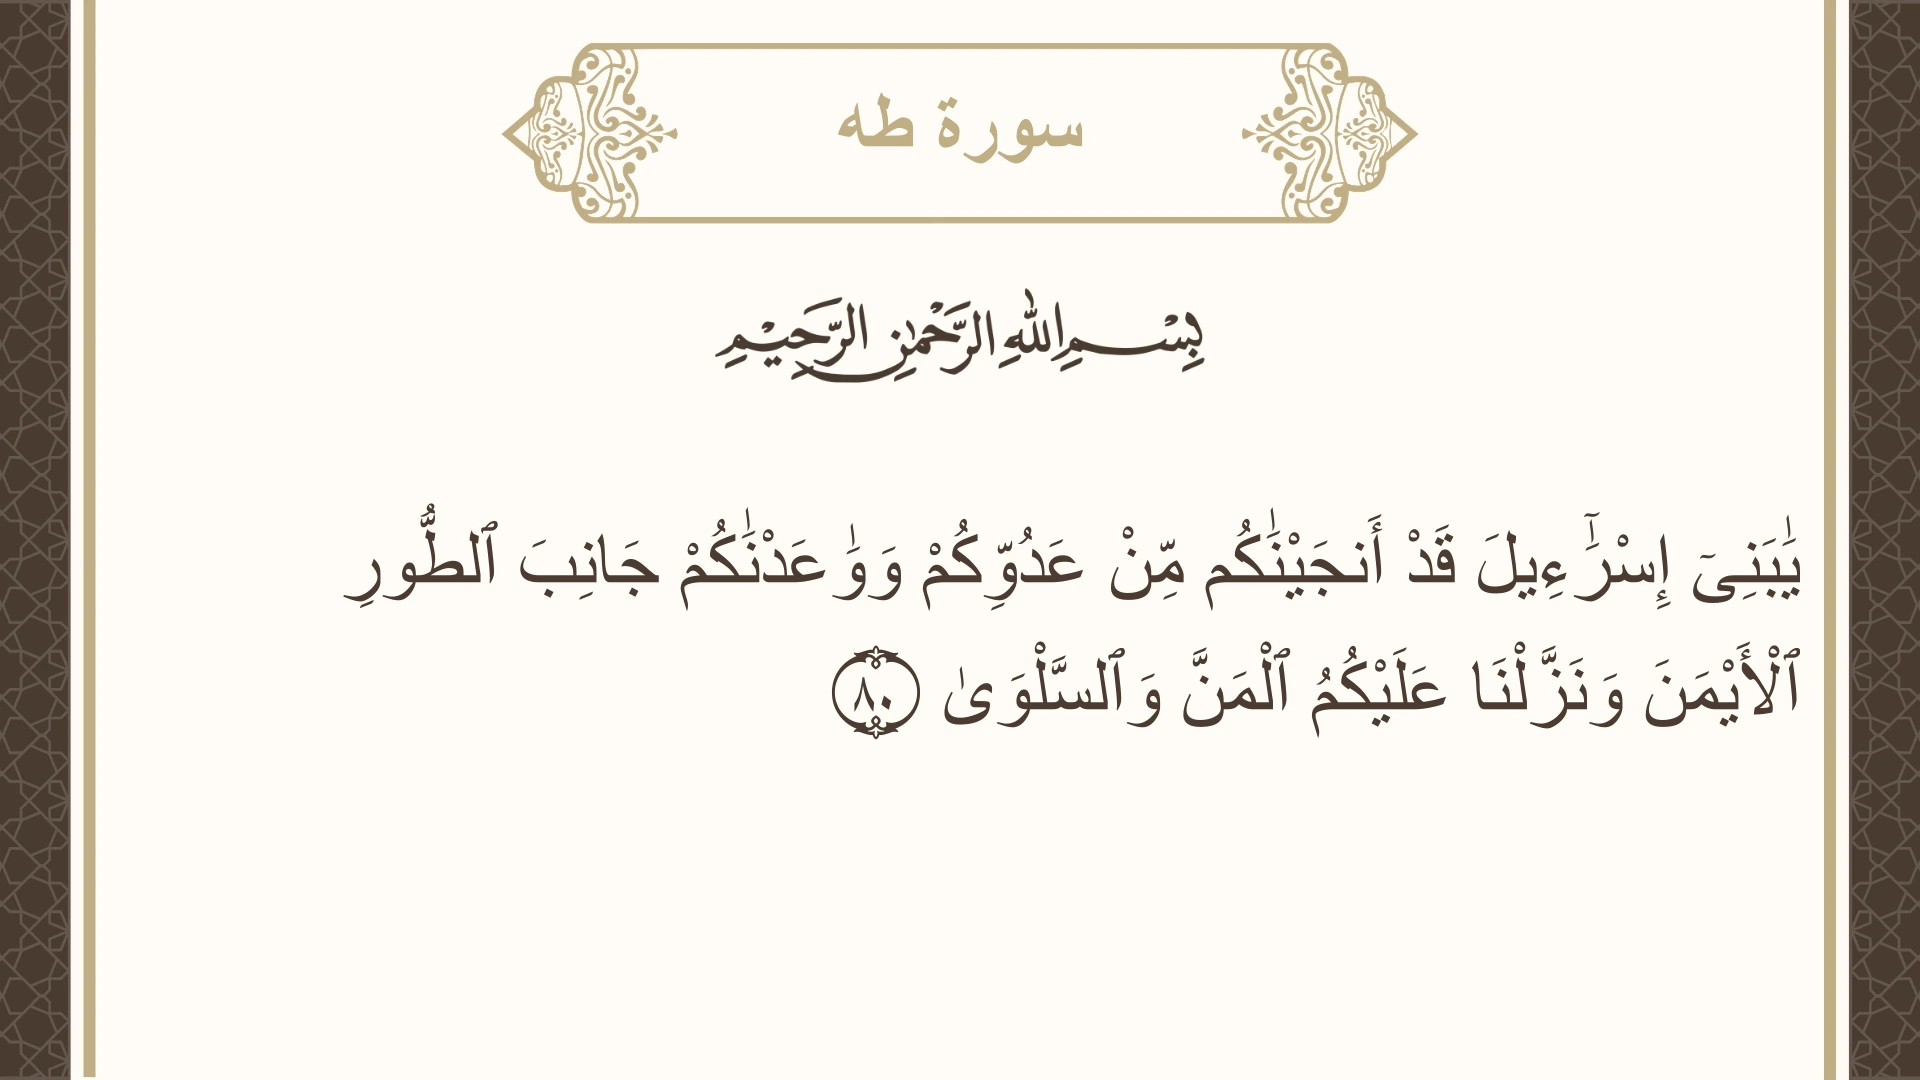 سورة طه
بِسْمِ اللهِ الرَّحْمٰنِ الرَّحِيْمِ
يَٰبَنِىٓ إِسْرَٰٓءِيلَ قَدْ أَنجَيْنَٰكُم مِّنْ عَدُوِّكُمْ وَوَٰعَدْنَٰكُمْ جَانِبَ ٱلطُّورِ
ٱلْأَيْمَنَ وَنَزَّلْنَا عَلَيْكُمُ ٱلْمَنَّ وَٱلسَّلْوَىٰ ٨٠